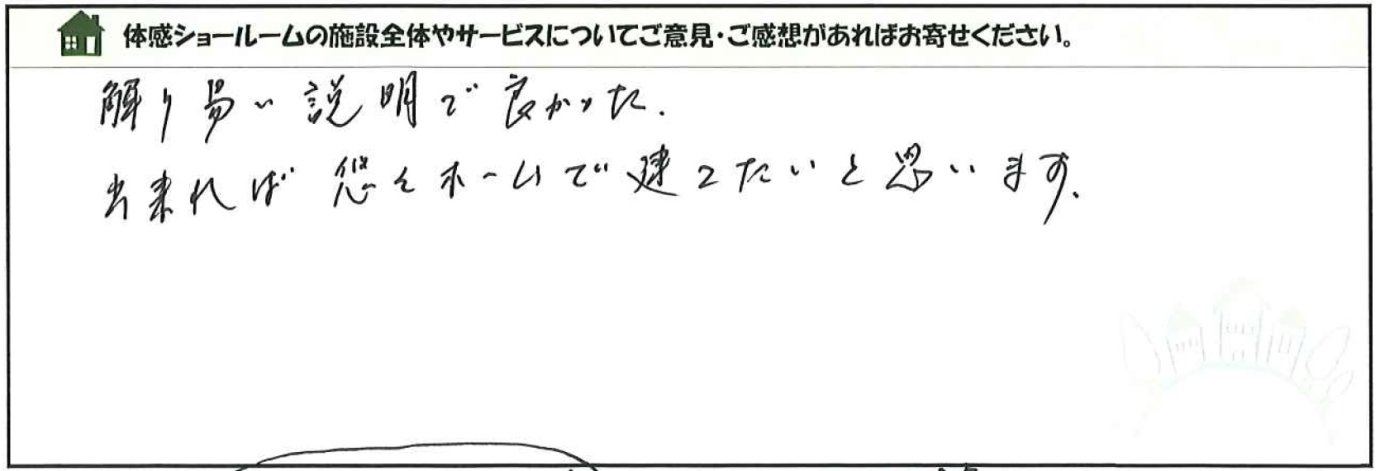 体感ショールームの施設全体やサービスについてご意見・ご感想があればお寄せください。
解り易い説明で良かった.
出来れば悠々ホームで建てたいと思います.